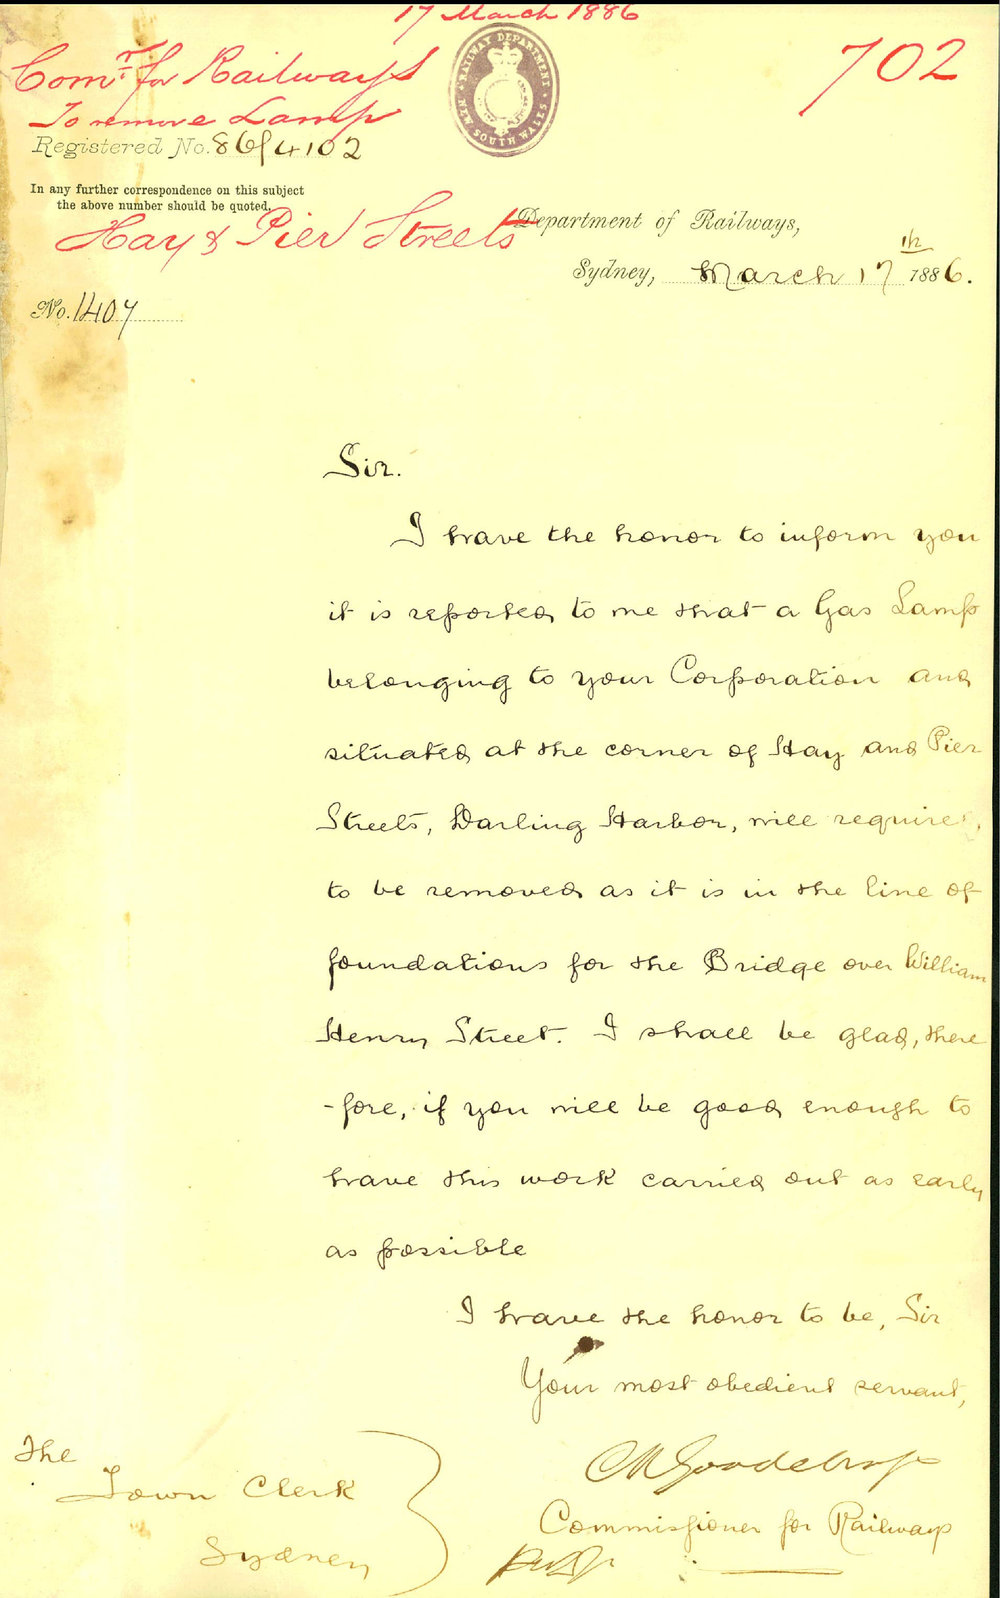 17 March 1886
Comr. for Railways
To remove Lamp
702
RAILWAY DEPARTMENT
NEW SOUTH WALES
Registered No. 86/4102
In any further correspondence on this subject
the above number should be quoted.
Hay & Pier Streets
Department of Railways,
Sydney, March 17th 1886.
No. 1407
Sir.
I have the honor to inform you
it is reported to me that a Gas Lamp
belonging to your Corporation and
situated at the corner of Hay and Pier
Streets, Darling Harbor, will require
to be removed as it is in the line of
foundations for the Bridge over William
Henry Street. I shall be glad, there
-fore, if you will be good enough to
have this work carried out as early
as possible
I have the honor to be, Sir
Your most obedient servant,
Ch Goodchap
Commissioner for Railways
The
Town Clerk
Sydney